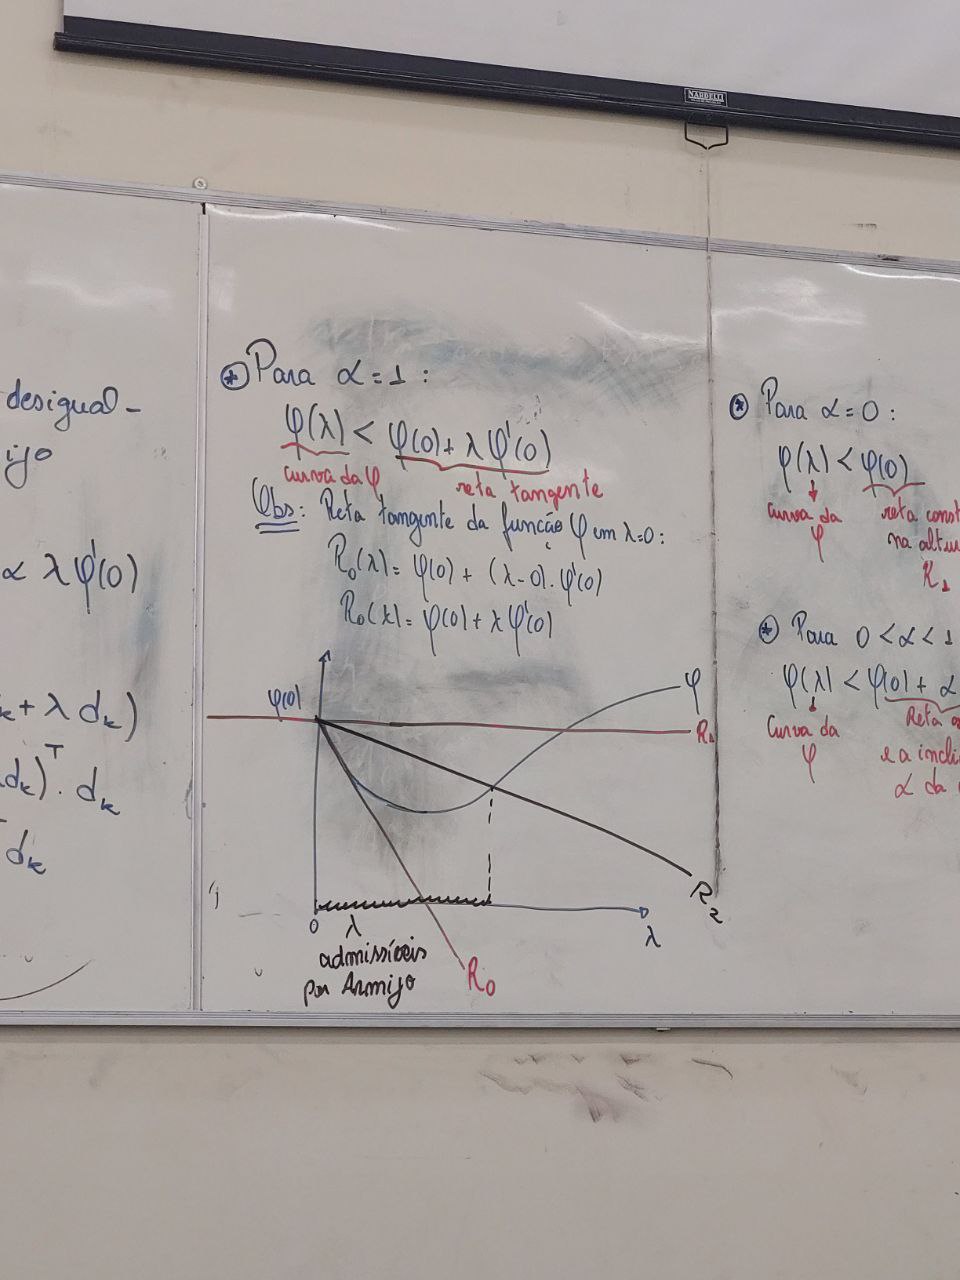 NARDELLI
desigual-
ijo
α λφ'(0)
k + λ dk)
dk)ᵀ. dk
dk
* Para α = 1 :
φ(λ) < φ(0) + λ φ'(0)
curva da φ reta tangente
Obs: Reta tangente da função φ em λ=0:
R₀(λ) = φ(0) + (λ-0). φ'(0)
R₀(λ) = φ(0) + λ φ'(0)
φ(0)
φ
R₁
R₂
0
λ
λ
admissíveis
por Armijo
R₀
* Para α = 0 :
φ(λ) < φ(0)
curva da φ reta const
na altu
R₁
* Para 0 < α < 1
φ(λ) < φ(0) + α
Curva da φ Reta
e a incli
α da